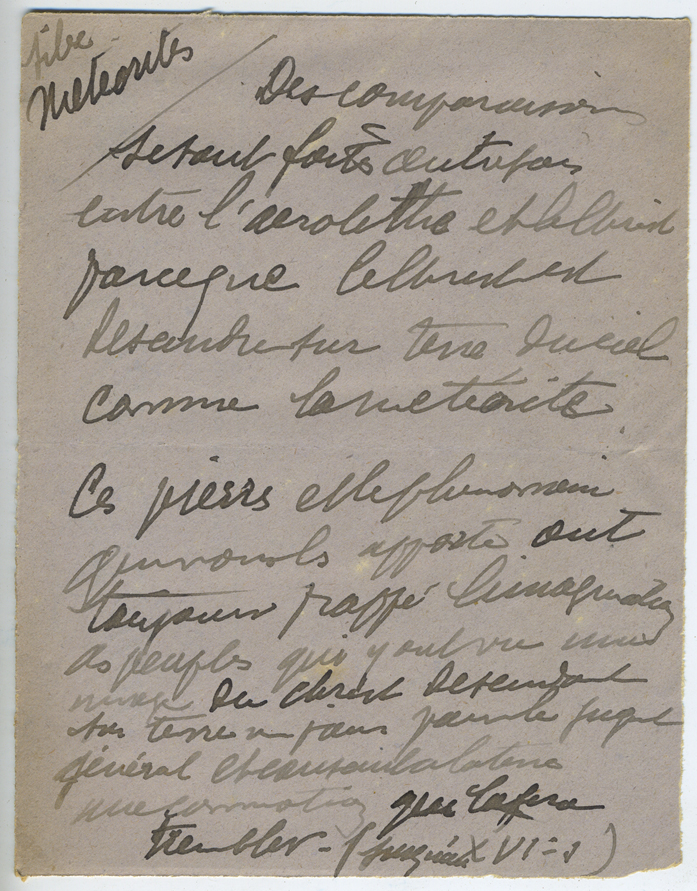 Meteorites
Des comparaisons
se sont faites autrefois
entre l'aerolithe et le Christ
parceque le Christ est
descendre sur terre du ciel
comme la meteorite
Ces pierrs et le phenomain
qui nous les apporte ont
toujours frappé l'imagination
des peuples qui y ont vu une
image du Christ descendant
sur terre un jour pour le juge
général et causant a la terre
une commotion qui la fera
trembler - (jusqu'au XVI = s)